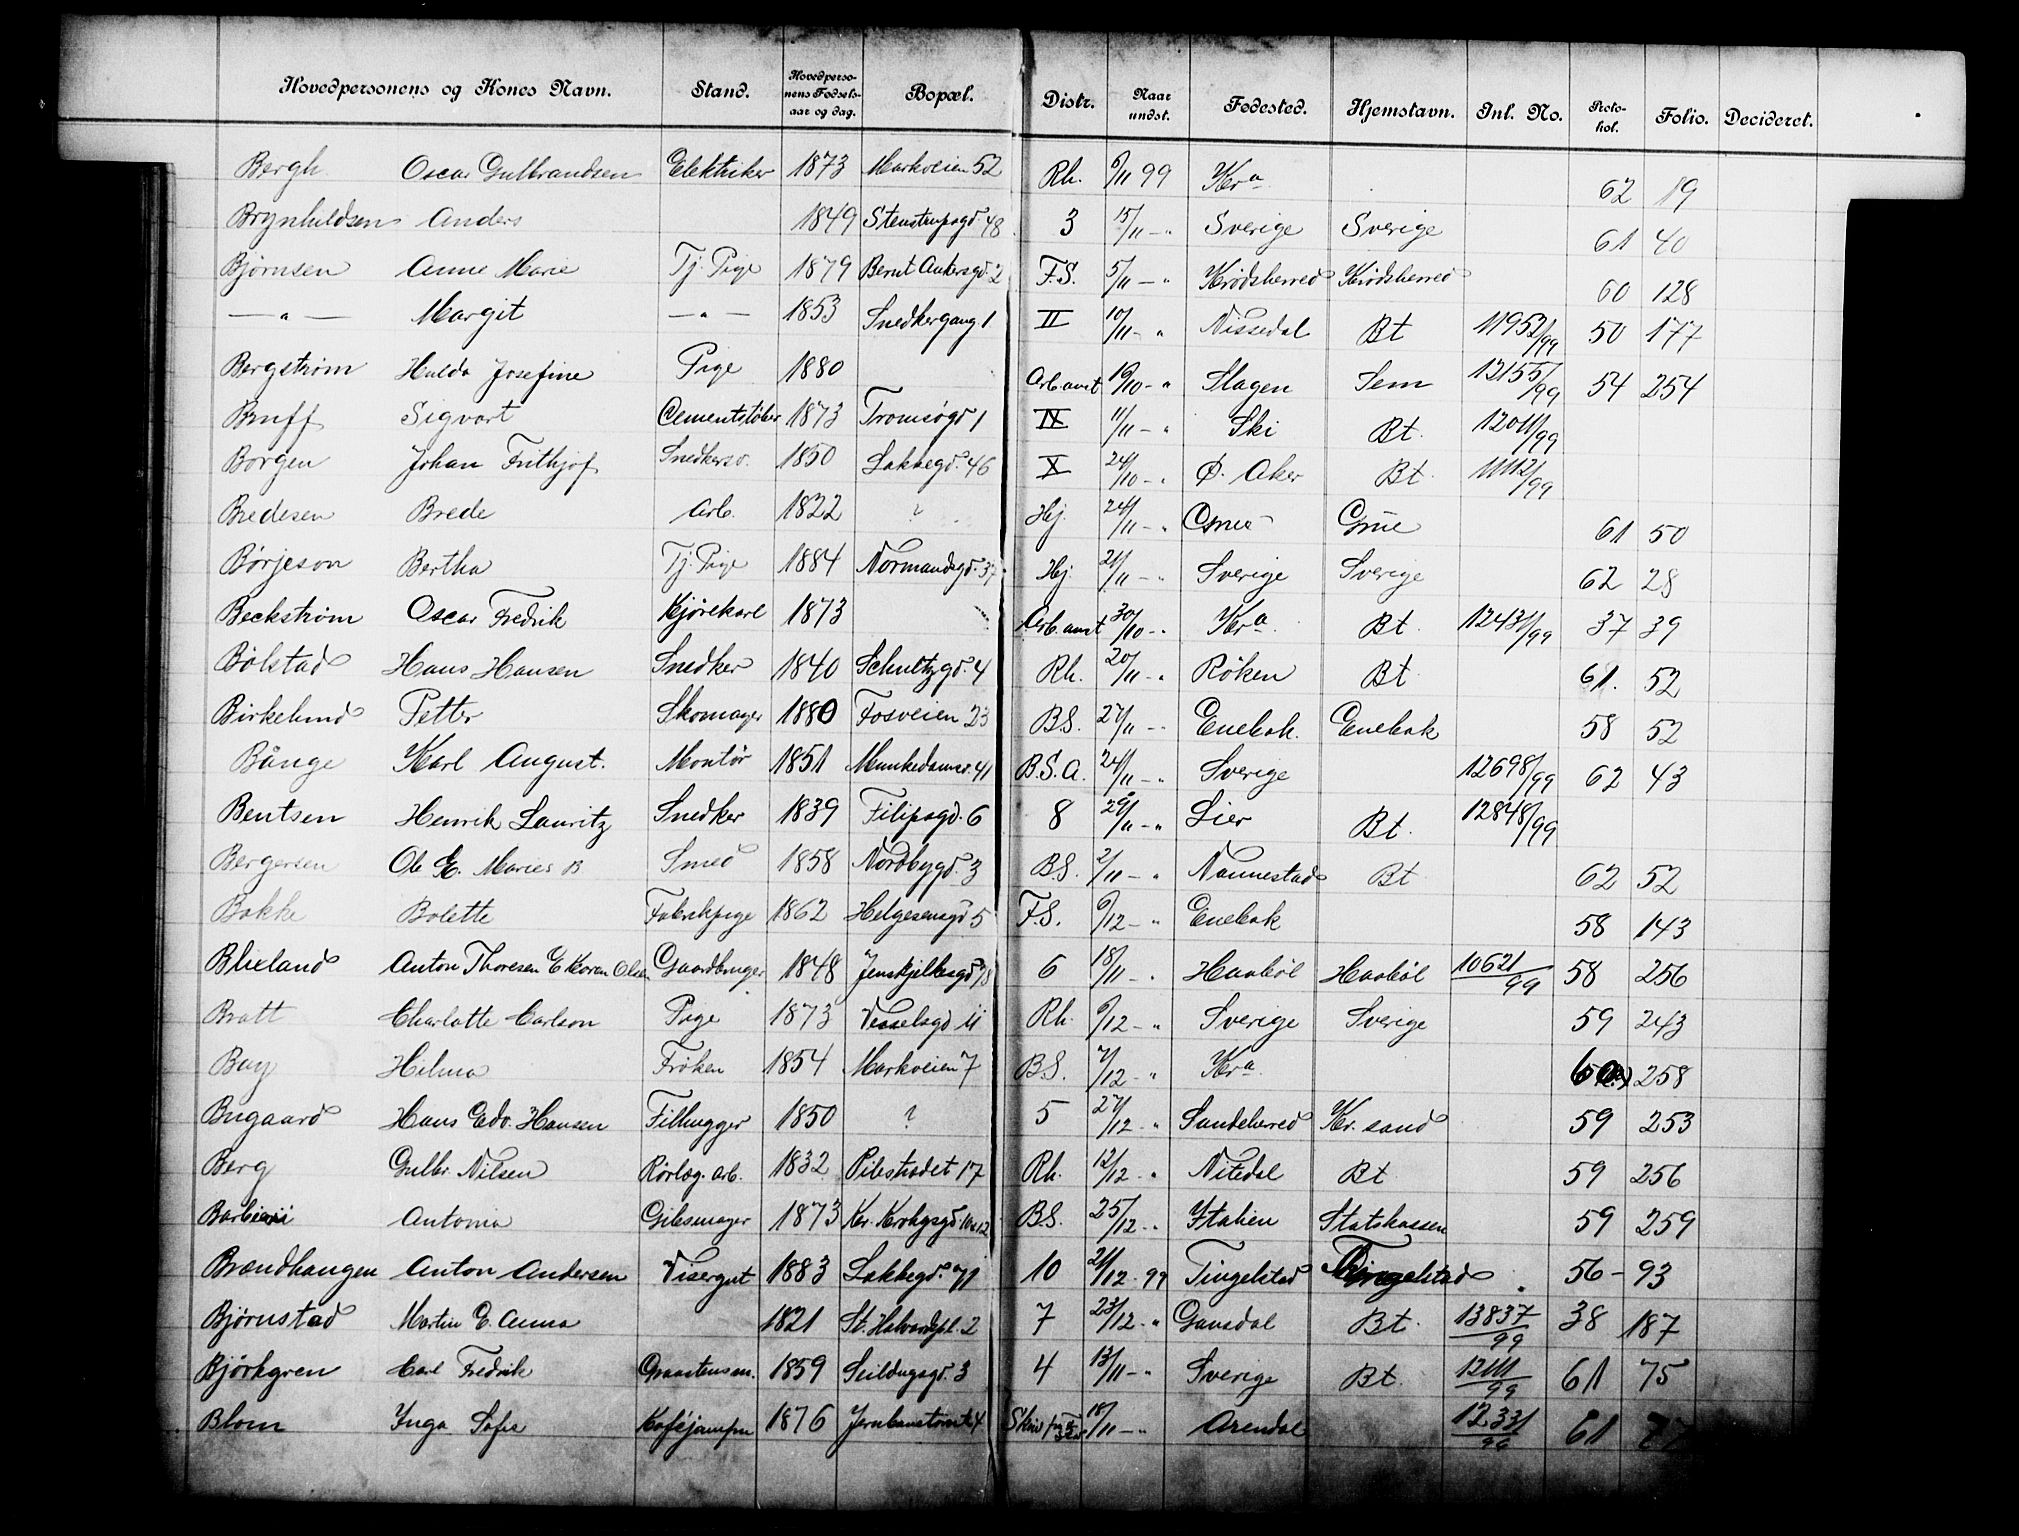 Hovedpersonens og Kones Navn. Stand. Hovedpersonens Fødselsaar og dag. Bopæl. Distr. Naar undst. Fødested. Hjemstavn. Inl. No. Protokol. Folio. Decideret.
Bergh Oscar Gulbrandsen Elektriker 1873 Markveien 52 Rh. 6/11 99 Kra. 62 19
Brynhildsen Anders 1849 Stenstrupsgd. 48 3 15/11 - " Sverige Sverige 61 40
Bjørnsen Anne Marie Tj. Pige 1879 Bernt Ankersgd. 2 F.S. 5/11 - " Krødsherred Krødsherred 60 128
— " — Margit — " — 1853 Snedkergang 1 II 10/11 - " Nissedal Bt 11952/99 50 177
Bergstrøm Hulda Josefine Pige 1880 Arb.anst 19/10 - " Slagen Sem 12155/99 54 254
Bruff Sigvart Cementstøber 1873 Tromsøgd 1 IX 11/11 - " Ski Bt. 12011/99
Borgen Johan Frithjof Snedkersv. 1850 Lakkegd. 46 X 24/10 - " Ø. Aker Bt. 11112/99
Bredesen Brede Arb. 1822 ? Hj. 24/11 - " Grue Grue 61 50
Børjeson Bertha Tj. Pige 1884 Normandsgd. 37 Hj. 21/11 - " Sverige Sverige 62 28
Beckstrøm Oscar Fredrik Kjørekarl 1873 Arb. anst 30/10 - " Kra. Bt. 12431/99 37 39
Bølstad Hans Hansen Snedker 1840 Schultzgd. 4 Rh. 20/11 - " Røken Bt 61. 52
Birkelund Petter Skomager 1880 Fosveien 23 B.S. 27/11 - " Enebak. Enebak 58 52
Bånge Karl August. Montør 1851 Munkedamsv. 41 B.S.A. 24/11 - " Sverige 12698/99 62 43
Bentsen Henrik Lauritz Snedker 1839 Filipsgd. 6 8 29/11 - " Lier Bt. 12848/99
Bergersen Ole E. Maries B Smed 1858 Nordbygd. 3 B.S. 2/11 - " Nannestad Bt 62 52
Bakke Bolette Fabrikpige 1862 Helgesensgd 5 F.S. 6/12 - " Enebak 58 143
Blixland Anton Thoresen E Karen Olsen Gaardbruger 1848 6 18/11 - " Haabøl Haabøl 10621/99 58 256
Bratt Charlotte Carlson Pige 1873 Vesselsgd 11 Rh. 6/12 - " Sverige Sverige 59 243
Bay Hilma Frøken 1854 Markveien 7 B.S. 7/12 - " Kra. 258
Bugaard Hans Edv. Hansen Filhugger 1850 ? 5 27/12 - " Sandeherred Kr. sand 59 253
Berg Gulbr. Nilsen Rørlæg. arb. 1832 Pilestrædet 17 Rh. 12/12 - " Nitedal Bt 59 256
Barbieri Antonia Gibsmager 1873 B.S. 25/12 - " Italien Statskassen 59 259
Brændhaugen Anton Andersen Visergut 1883 Lakkegd. 71 10 21/12 - 99 Tingelstad Tingelstad. 56 - 93
Bjørnstad Martin E. Anna 1821 St. Halvardspl. 2 7 23/12 - " Gausdal Bt. 13837/99 38 187
Bjørkgren Carl Fredrik Graastensm. 1859 Seildugsgd. 3 4 13/11 - " Sverige Bt. 12111/99 61 75
Blom Inga Sofie Kaféjomfru 1876 Jernbanetorvet 4 18/11 - " Arendal 12331/99 61 77